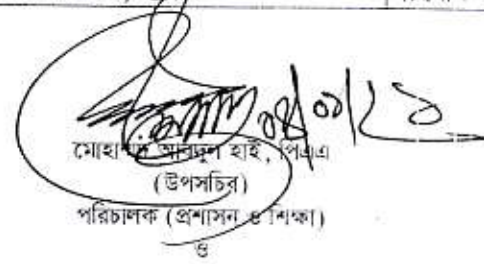 মোহাম্মদ আবদুল হাই, পিএএ
(উপসচিব)
পরিচালক (প্রশাসন ও শিক্ষা)
ও